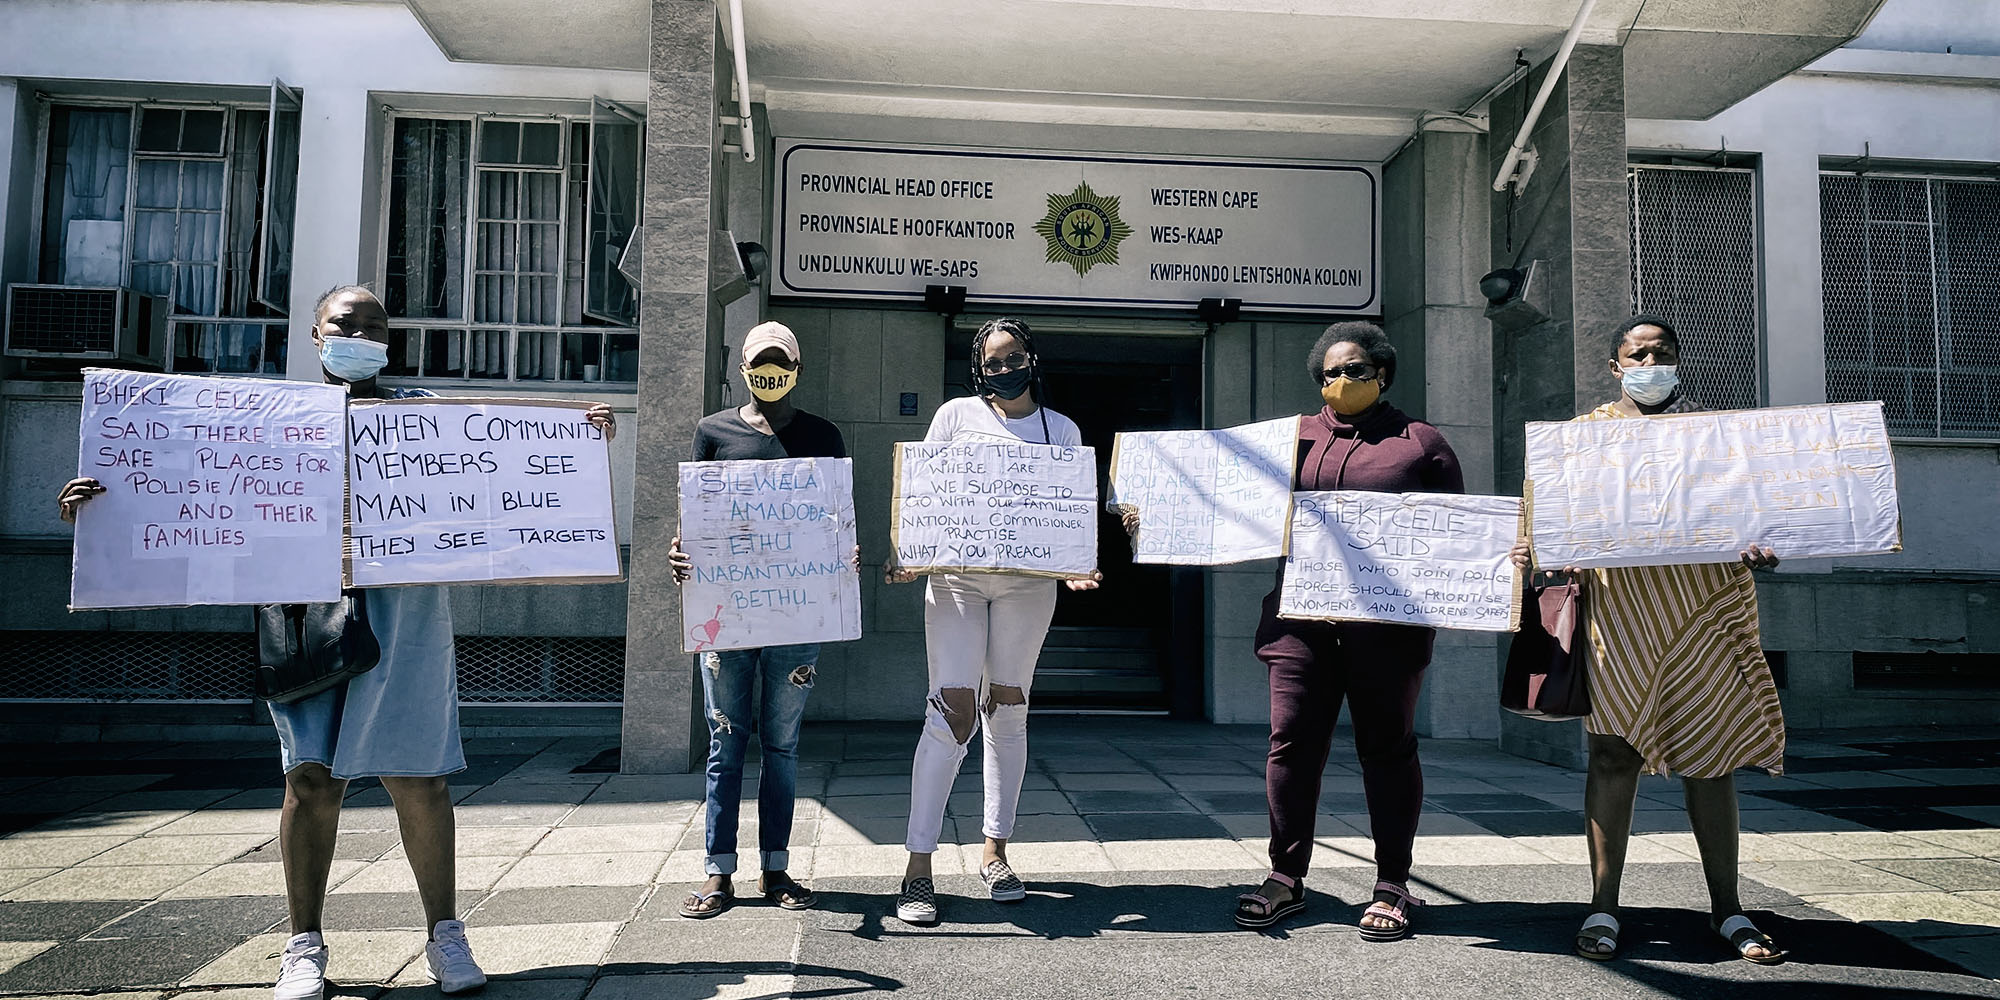 PROVINCIAL HEAD OFFICE
PROVINSIALE HOOFKANTOOR
UNDLUNKULU WE-SAPS
WESTERN CAPE
WES-KAAP
KWIPHONDO LENTSHONA KOLONI
BHEKI CELE
SAID THERE ARE
SAFE PLACES FOR
POLISIE/POLICE
AND THEIR
FAMILIES
WHEN COMMUNITY
MEMBERS SEE
MAN IN BLUE
THEY SEE TARGETS
REDBAT
SILWELA
AMADODA
ETHU
NABANTWANA
BETHU_
MINISTER TELL US
WHERE ARE
WE SUPPOSE TO
GO WITH OUR FAMILIES
NATIONAL COMMISIONER
PRACTISE
WHAT YOU PREACH
ARE
FRONT LINERS BUT
YOU ARE SENDING
BACK TO THE
WHICH
ARE
BHEKI CELE
SAID
"THOSE WHO JOIN POLICE
FORCE SHOULD PRIORITISE
WOMEN'S AND CHILDRENS SAFETY